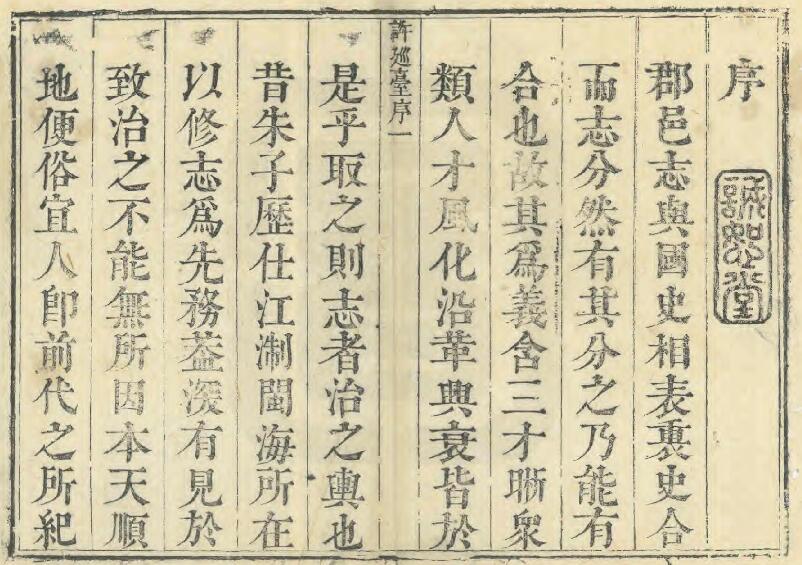 序
誠恕堂
郡邑志與國史相表裏史合
而志分然有其分之乃能有
合也故其爲義含三才晣衆
類人才風化沿革興衰皆於
許巡臺序一
是乎取之則志者治之輿也
昔朱子歷仕江淛閩海所在
以修志爲先務葢深有見於
致治之不能無所因本天順
地便俗宜人卽前代之所紀